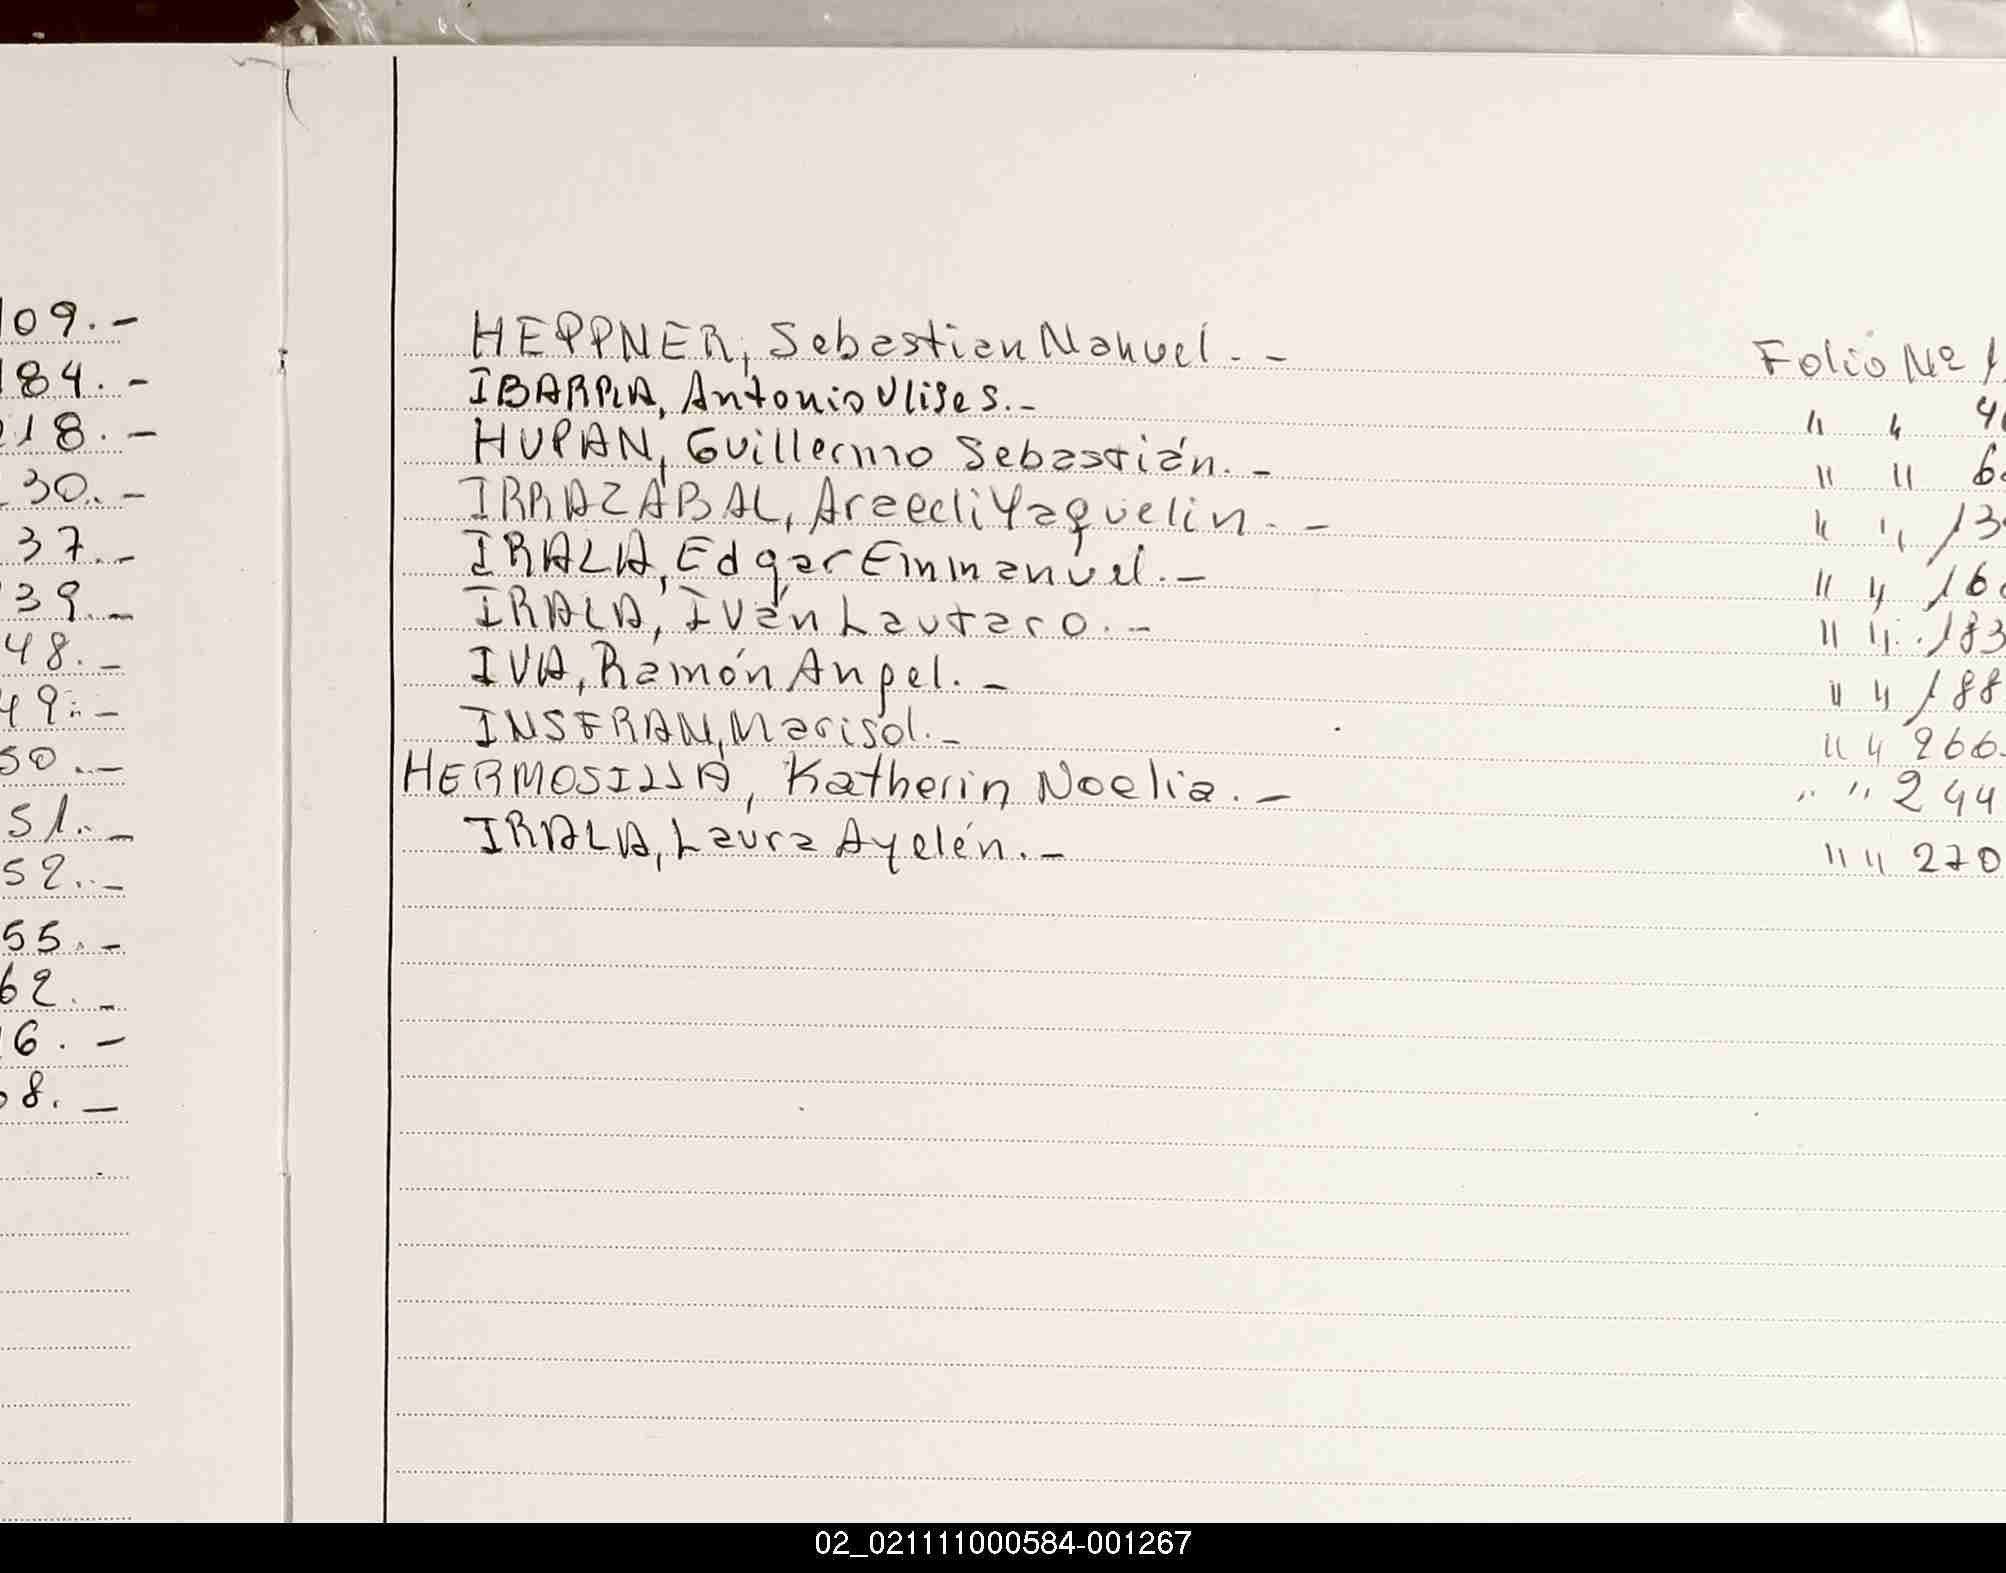 109.-
184.-
218.-
30.-
37.-
39.-
48.-
49.-
50.-
51.-
52.-
55.-
62.-
16.-
68.-
HEPPNER, Sebastian Nahuel.- Folio Nº 1
IBARRA, Antonio Ulises.- " " 4
HUPAN, Guillermo Sebastián.- " " 6
IRRAZABAL, Araceli Yaquelin.- " " 13
IRALA, Edgar Emmanuel.- " " 16
IRALA, Iván Lautaro.- " " 183
IVA, Ramón Angel.- " " 188
INSFRAN, Marisol.- " " 266.
HERMOSILLA, Katherin Noelia.- " " 244
IRALA, Laura Ayelén.- " " 270
02_021111000584-001267